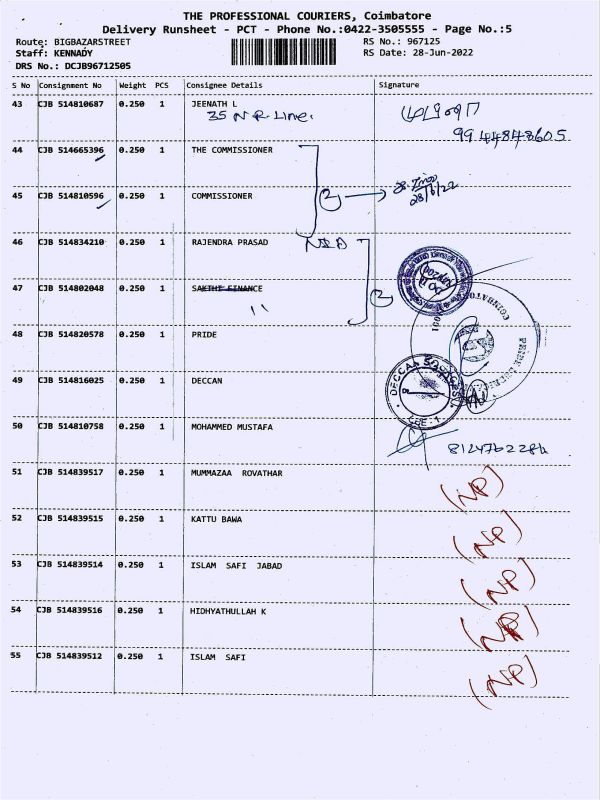 THE PROFESSIONAL COURIERS, Coimbatore
Delivery Runsheet - PCT - Phone No.:0422-3505555 - Page No.:5
Route: BIGBAZARSTREET
Staff: KENNADY
DRS No.: DCJB96712505
RS No.: 967125
RS Date: 28-Jun-2022
S No Consignment No Weight PCS Consignee Details Signature
43 CJB 514810687 0.250 1 JEENATH L
35 N R Line.
9944848605
44 CJB 514665396 0.250 1 THE COMMISSIONER
2
28/6/22
45 CJB 514810596 0.250 1 COMMISSIONER
46 CJB 514834210 0.250 1 RAJENDRA PRASAD
47 CJB 514802048 0.250 1 SAKTHI FINANCE
2
48 CJB 514820578 0.250 1 PRIDE
49 CJB 514816025 0.250 1 DECCAN
DECCAN
CBE - 1
50 CJB 514810758 0.250 1 MOHAMMED MUSTAFA
8124762284
51 CJB 514839517 0.250 1 MUMMAZAA ROVATHAR
(NP)
52 CJB 514839515 0.250 1 KATTU BAWA
(NP)
53 CJB 514839514 0.250 1 ISLAM SAFI JABAD
(NP)
54 CJB 514839516 0.250 1 HIDHYATHULLAH K
(NP)
55 CJB 514839512 0.250 1 ISLAM SAFI
(NP)